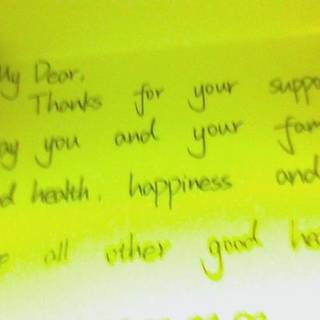 My Dear.
Thanks for your suppo
ay you and your fam
d health. happiness and
e all other good he